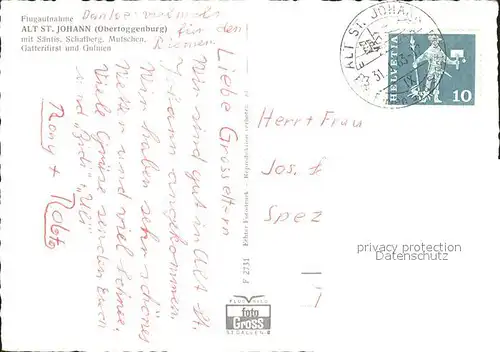 Flugaufnahme
ALT ST. JOHANN (Obertoggenburg)
mit Säntis, Schafberg, Mutschen,
Gatterifirst und Gulmen
Danke nochmals
für den
Liebe Grosseltern
Wir sind gut in Alt St.
Johann angekommen.
Wir haben sehr schönes
Wetter und viel Schnee.
Viele Grüsse senden Euch
und
Rony + Robert
F 2731 Echter Fotodruck - Reproduktion verboten
FLUG BILD
foto
Gross
ST. GALLEN
ALT ST. JOHANN
HELVETIA
10
Herrn Frau
Jos.
Spez
privacy protection
Datenschutz